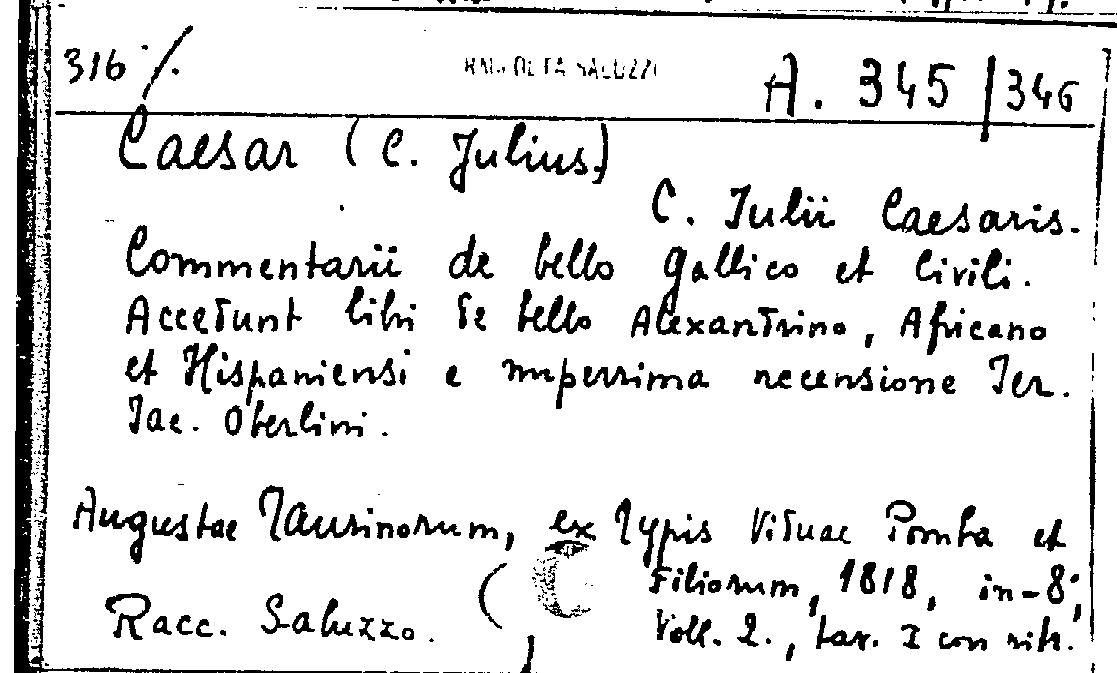 316 /.
RACCOLTA SALUZZI
A. 345/346
Caesar (C. Julius)
C. Iulii Caesaris.
Commentarii de bello gallico et civili.
Accedunt libri de bello Alexandrino, Africano
et Hispaniensi e nuperrima recensione Ier.
Iac. Oberlini.
Augustae Taurinorum, ex Typis Viduae Pomba et
Filiorum, 1818, in-8°,
Racc. Saluzzo.
Voll. 2., tav. I con ritr.